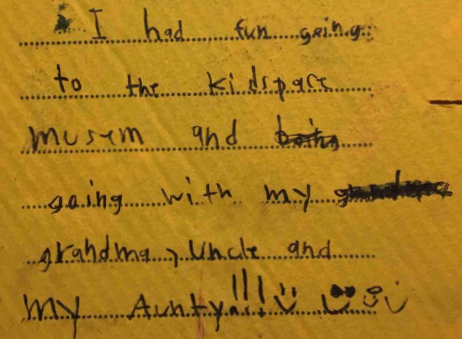 I had fun going
to the kidspace
musem and
going with my
grandma, Uncle and
my Aunty!!!